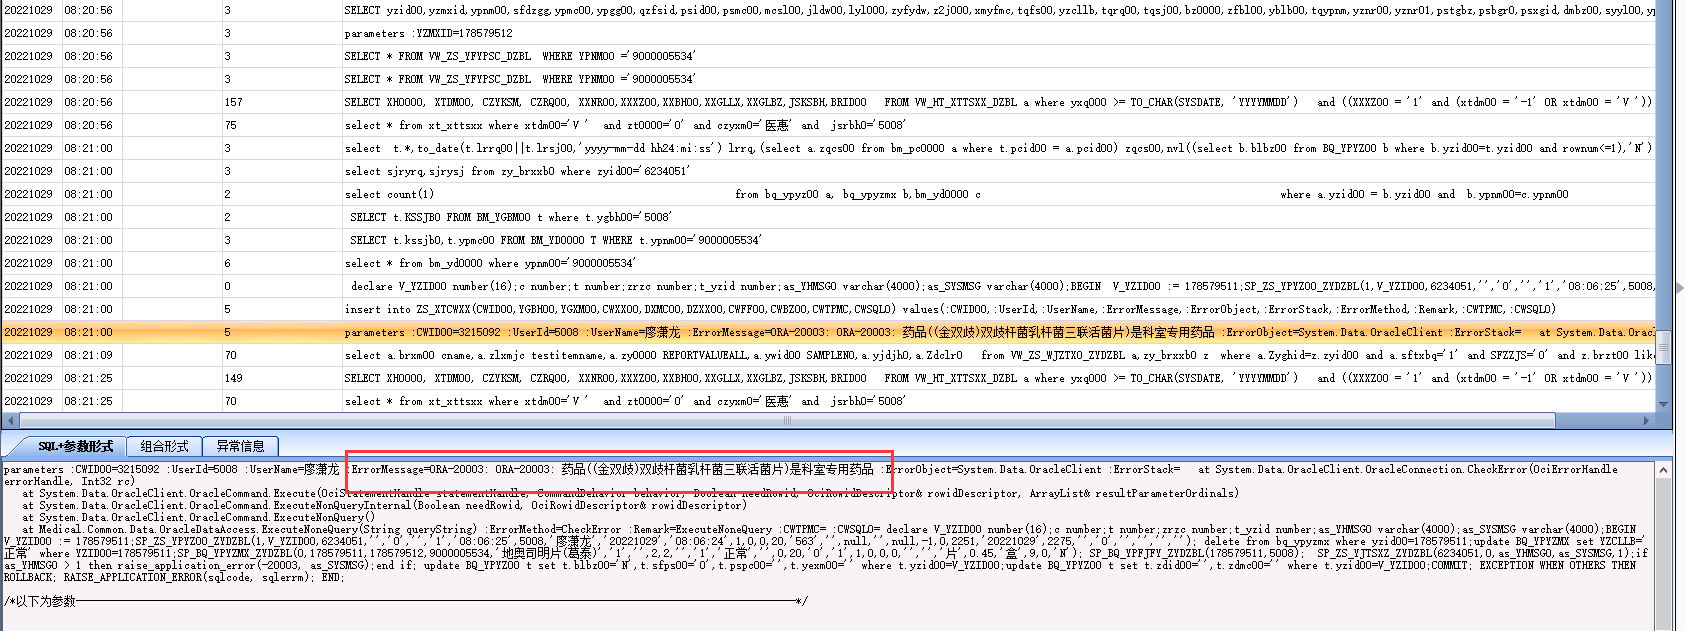 20221029 08:20:56 3 SELECT yzid00,yzmxid,ypnm00,sfdzgg,ypmc00,ypgg00,qzfsid,psid00,psmc00,mcsl00,jldw00,lyl000,zyfydw,z2j000,xmyfmc,tqfs00,yzcllb,tqrq00,tqsj00,bz0000,zfbl00,yblb00,tqypnm,yznr00,yznr01,pstgbz,psbgr0,psxgid,dmbz00,syyl00,yp
20221029 08:20:56 3 parameters :YZMXID=178579512
20221029 08:20:56 3 SELECT * FROM VW_ZS_YFYPSC_DZBL WHERE YPNM00 ='9000005534'
20221029 08:20:56 3 SELECT * FROM VW_ZS_YFYPSC_DZBL WHERE YPNM00 ='9000005534'
20221029 08:20:56 157 SELECT XH0000, XTDM00, CZYKSM, CZRQ00, XXNR00,XXXZ00,XXBH00,XXGLLX,XXGLBZ,JSKSBH,BRID00 FROM VW_HT_XTTSXX_DZBL a where yxq000 >= TO_CHAR(SYSDATE, 'YYYYMMDD') and ((XXXZ00 = '1' and (xtdm00 = '-1' OR xtdm00 = 'V '))
20221029 08:20:56 75 select * from xt_xttsxx where xtdm00='V ' and zt0000='0' and czyxm0='医惠' and jsrbh0='5008'
20221029 08:21:00 3 select t.*,to_date(t.lrrq00||t.lrsj00,'yyyy-mm-dd hh24:mi:ss') lrrq,(select a.zqcs00 from bm_pc0000 a where t.pcid00 = a.pcid00) zqcs00,nvl((select b.blbz00 from BQ_YPYZ00 b where b.yzid00=t.yzid00 and rownum<=1),'N')
20221029 08:21:00 3 select sjryrq,sjrysj from zy_brxxb0 where zyid00='6234051'
20221029 08:21:00 2 select count(1) from bq_ypyz00 a, bq_ypyzmx b,bm_yd0000 c where a.yzid00 = b.yzid00 and b.ypnm00=c.ypnm00
20221029 08:21:00 2 SELECT t.KSSJB0 FROM BM_YGBM00 t where t.ygbh00='5008'
20221029 08:21:00 3 SELECT t.kssjb0,t.ypmc00 FROM BM_YD0000 T WHERE t.ypnm00='9000005534'
20221029 08:21:00 6 select * from bm_yd0000 where ypnm00='9000005534'
20221029 08:21:00 0 declare V_YZID00 number(16);c number;t number;zrzc number;t_yzid number;as_YHMSG0 varchar(4000);as_SYSMSG varchar(4000);BEGIN V_YZID00 := 178579511;SP_ZS_YPYZ00_ZYDZBL(1,V_YZID00,6234051,'','0','','1','08:06:25',5008,
20221029 08:21:00 5 insert into ZS_XTCWXX(CWID00,YGBH00,YGXM00,CWXX00,DXMC00,DZXX00,CWFF00,CWBZ00,CWTPMC,CWSQL0) values(:CWID00,:UserId,:UserName,:ErrorMessage,:ErrorObject,:ErrorStack,:ErrorMethod,:Remark,:CWTPMC,:CWSQL0)
20221029 08:21:00 5 parameters :CWID00=3215092 :UserId=5008 :UserName=廖潇龙 :ErrorMessage=ORA-20003: ORA-20003: 药品((金双歧)双歧杆菌乳杆菌三联活菌片)是科室专用药品 :ErrorObject=System.Data.OracleClient :ErrorStack= at System.Data.Orac
20221029 08:21:09 70 select a.brxm00 cname,a.zlxmjc testitemname,a.zy0000 REPORTVALUEALL,a.ywid00 SAMPLENO,a.yjdjh0,a.Zdclr0 from VW_ZS_WJZTX0_ZYDZBL a,zy_brxxb0 z where a.Zyghid=z.zyid00 and a.sftxbq='1' and SFZZJS='0' and z.brzt00 like
20221029 08:21:25 149 SELECT XH0000, XTDM00, CZYKSM, CZRQ00, XXNR00,XXXZ00,XXBH00,XXGLLX,XXGLBZ,JSKSBH,BRID00 FROM VW_HT_XTTSXX_DZBL a where yxq000 >= TO_CHAR(SYSDATE, 'YYYYMMDD') and ((XXXZ00 = '1' and (xtdm00 = '-1' OR xtdm00 = 'V '))
20221029 08:21:25 70 select * from xt_xttsxx where xtdm00='V ' and zt0000='0' and czyxm0='医惠' and jsrbh0='5008'
SQL+参数形式 组合形式 异常信息
parameters :CWID00=3215092 :UserId=5008 :UserName=廖潇龙 :ErrorMessage=ORA-20003: ORA-20003: 药品((金双歧)双歧杆菌乳杆菌三联活菌片)是科室专用药品 :ErrorObject=System.Data.OracleClient :ErrorStack= at System.Data.OracleClient.OracleConnection.CheckError(OciErrorHandle
errorHandle, Int32 rc)
at System.Data.OracleClient.OracleCommand.Execute(OciStatementHandle statementHandle, CommandBehavior behavior, Boolean needRowid, OciRowidDescriptor& rowidDescriptor, ArrayList& resultParameterOrdinals)
at System.Data.OracleClient.OracleCommand.ExecuteNonQueryInternal(Boolean needRowid, OciRowidDescriptor& rowidDescriptor)
at System.Data.OracleClient.OracleCommand.ExecuteNonQuery()
at Medical.Common.Data.OracleDataAccess.ExecuteNonQuery(String queryString) :ErrorMethod=CheckError :Remark=ExecuteNoneQuery :CWTPMC= :CWSQL0= declare V_YZID00 number(16);c number;t number;zrzc number;t_yzid number;as_YHMSG0 varchar(4000);as_SYSMSG varchar(4000);BEGIN
V_YZID00 := 178579511;SP_ZS_YPYZ00_ZYDZBL(1,V_YZID00,6234051,'','0','','1','08:06:25',5008,'廖潇龙','20221029','08:06:24',1,0,0,20,'563','',null,'',null,-1,0,2251,'20221029',2275,'','0','','','',''); delete from bq_ypyzmx where yzid00=178579511;update BQ_YPYZMX set YZCLLB='
正常' where YZID00=178579511;SP_BQ_YPYZMX_ZYDZBL(0,178579511,178579512,9000005534,'地奥司明片(葛泰)','1','',2,2,'','1','正常','',0,20,'0','1',1,0,0,0,'','','片',0.45,'盒',9,0,'N'); SP_BQ_YPFJFY_ZYDZBL(178579511,5008); SP_ZS_YJTSXZ_ZYDZBL(6234051,0,as_YHMSG0,as_SYSMSG,1);if
as_YHMSG0 > 1 then raise_application_error(-20003, as_SYSMSG);end if; update BQ_YPYZ00 t set t.blbz00='N',t.sfps00='0',t.pspc00='',t.yexm00='' where t.yzid00=V_YZID00;update BQ_YPYZ00 t set t.zdid00='',t.zdmc00='' where t.yzid00=V_YZID00;COMMIT; EXCEPTION WHEN OTHERS THEN
ROLLBACK; RAISE_APPLICATION_ERROR(sqlcode, sqlerrm); END;
/*以下为参数————————————————————*/